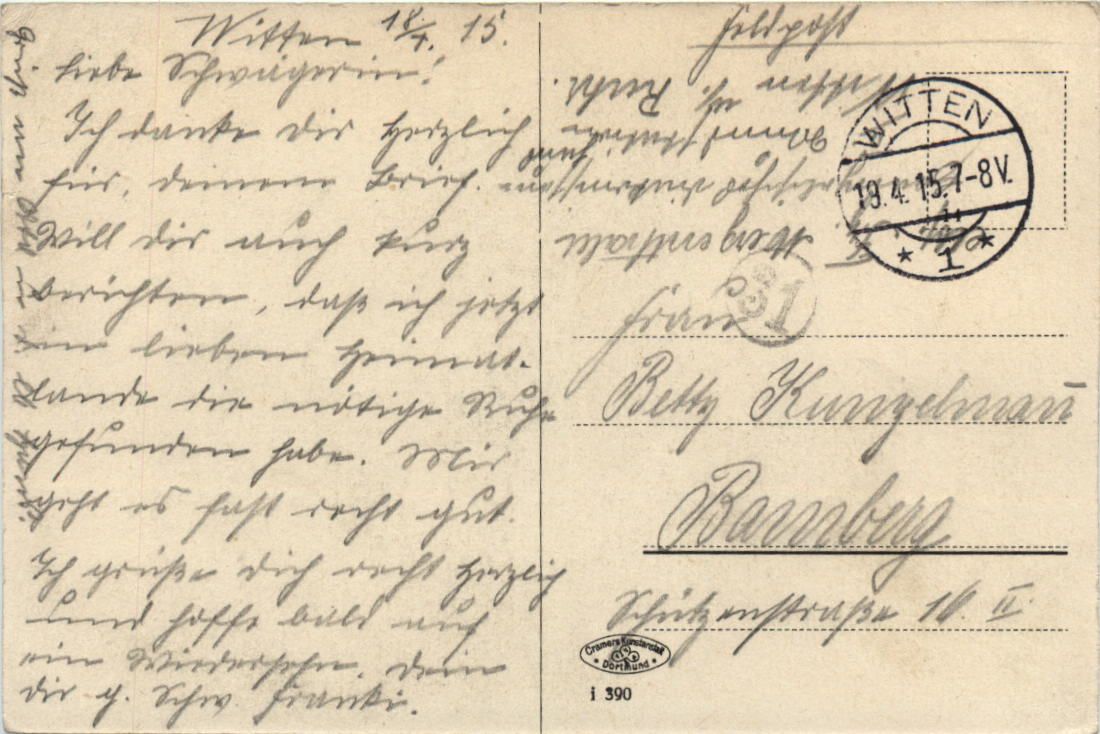 Witten 18/4. 15.
Liebe Schwägerin!
Ich danke dir herzlich
für deinen Brief.
Will dir auch kurz
berichten, daß ich jetzt
im lieben Heimat-
lande die nötige Ruhe
gefunden habe. Mir
geht es fast recht gut.
Ich grüße dich recht herzlich
und hoffe bald auf
ein Wiedersehn. Dein
dir g. Schw. Franki.
Gruß an
Feldpost
Witten a/. Ruhr.
WITTEN
19.4.15.7-8V.
* 1 *
Frau
Betty Kunzelmann
Bamberg
Schützenstraße 16. II.
Cramers Kunstanstalt
Dortmund
i 390